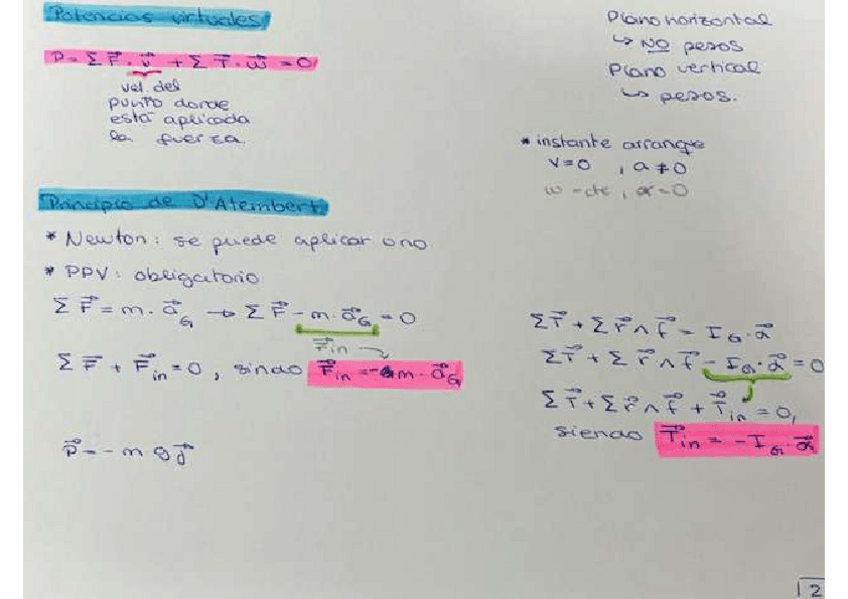 Potencias virtuales
P = Σ F⃗ · v⃗ + Σ T⃗ · w⃗ = 0
vel. del
punto donde
está aplicada
la fuerza.
Plano horizontal
↳ NO pesos
Plano vertical
↳ pesos.
* instante arranque
v=0 , a ≠ 0
w = cte , α = 0
Principio de D'Alembert
* Newton: se puede aplicar o no
* PPV: obligatorio
Σ F⃗ = m · a⃗G → Σ F⃗ - m · a⃗G = 0
F⃗in →
Σ F⃗ + F⃗in = 0 , sindo F⃗in = - m · a⃗G
P⃗ = - m g j⃗
Σ T⃗ + Σ r⃗ ∧ f⃗ = IG · α⃗
Σ T⃗ + Σ r⃗ ∧ f⃗ - IG · α⃗ = 0
Σ T⃗ + Σ r⃗ ∧ f⃗ + T⃗in = 0,
siendo T⃗in = - IG · α⃗
12